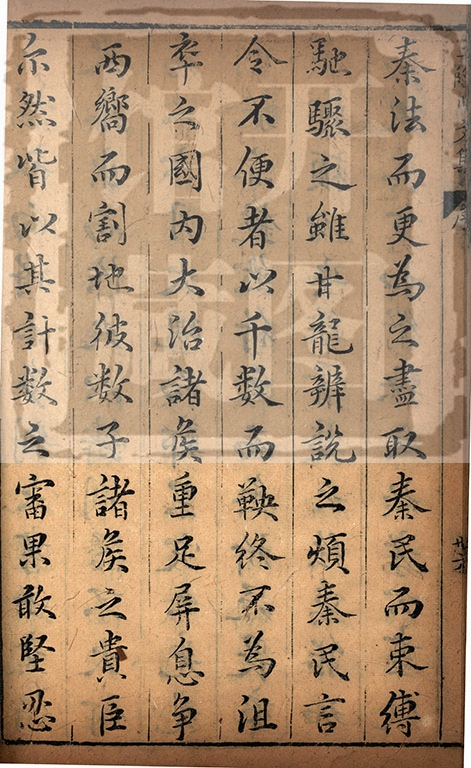 秦法而更為之盡取秦民而束縛
馳驟之雖甘龍辨說之頻秦民言
令不便者以千數而鞅終不為沮
卒之國內大治諸侯重足屏息争
西嚮而割地彼数子諸侯之貴臣
尓然皆以其計数之審果敢堅忍